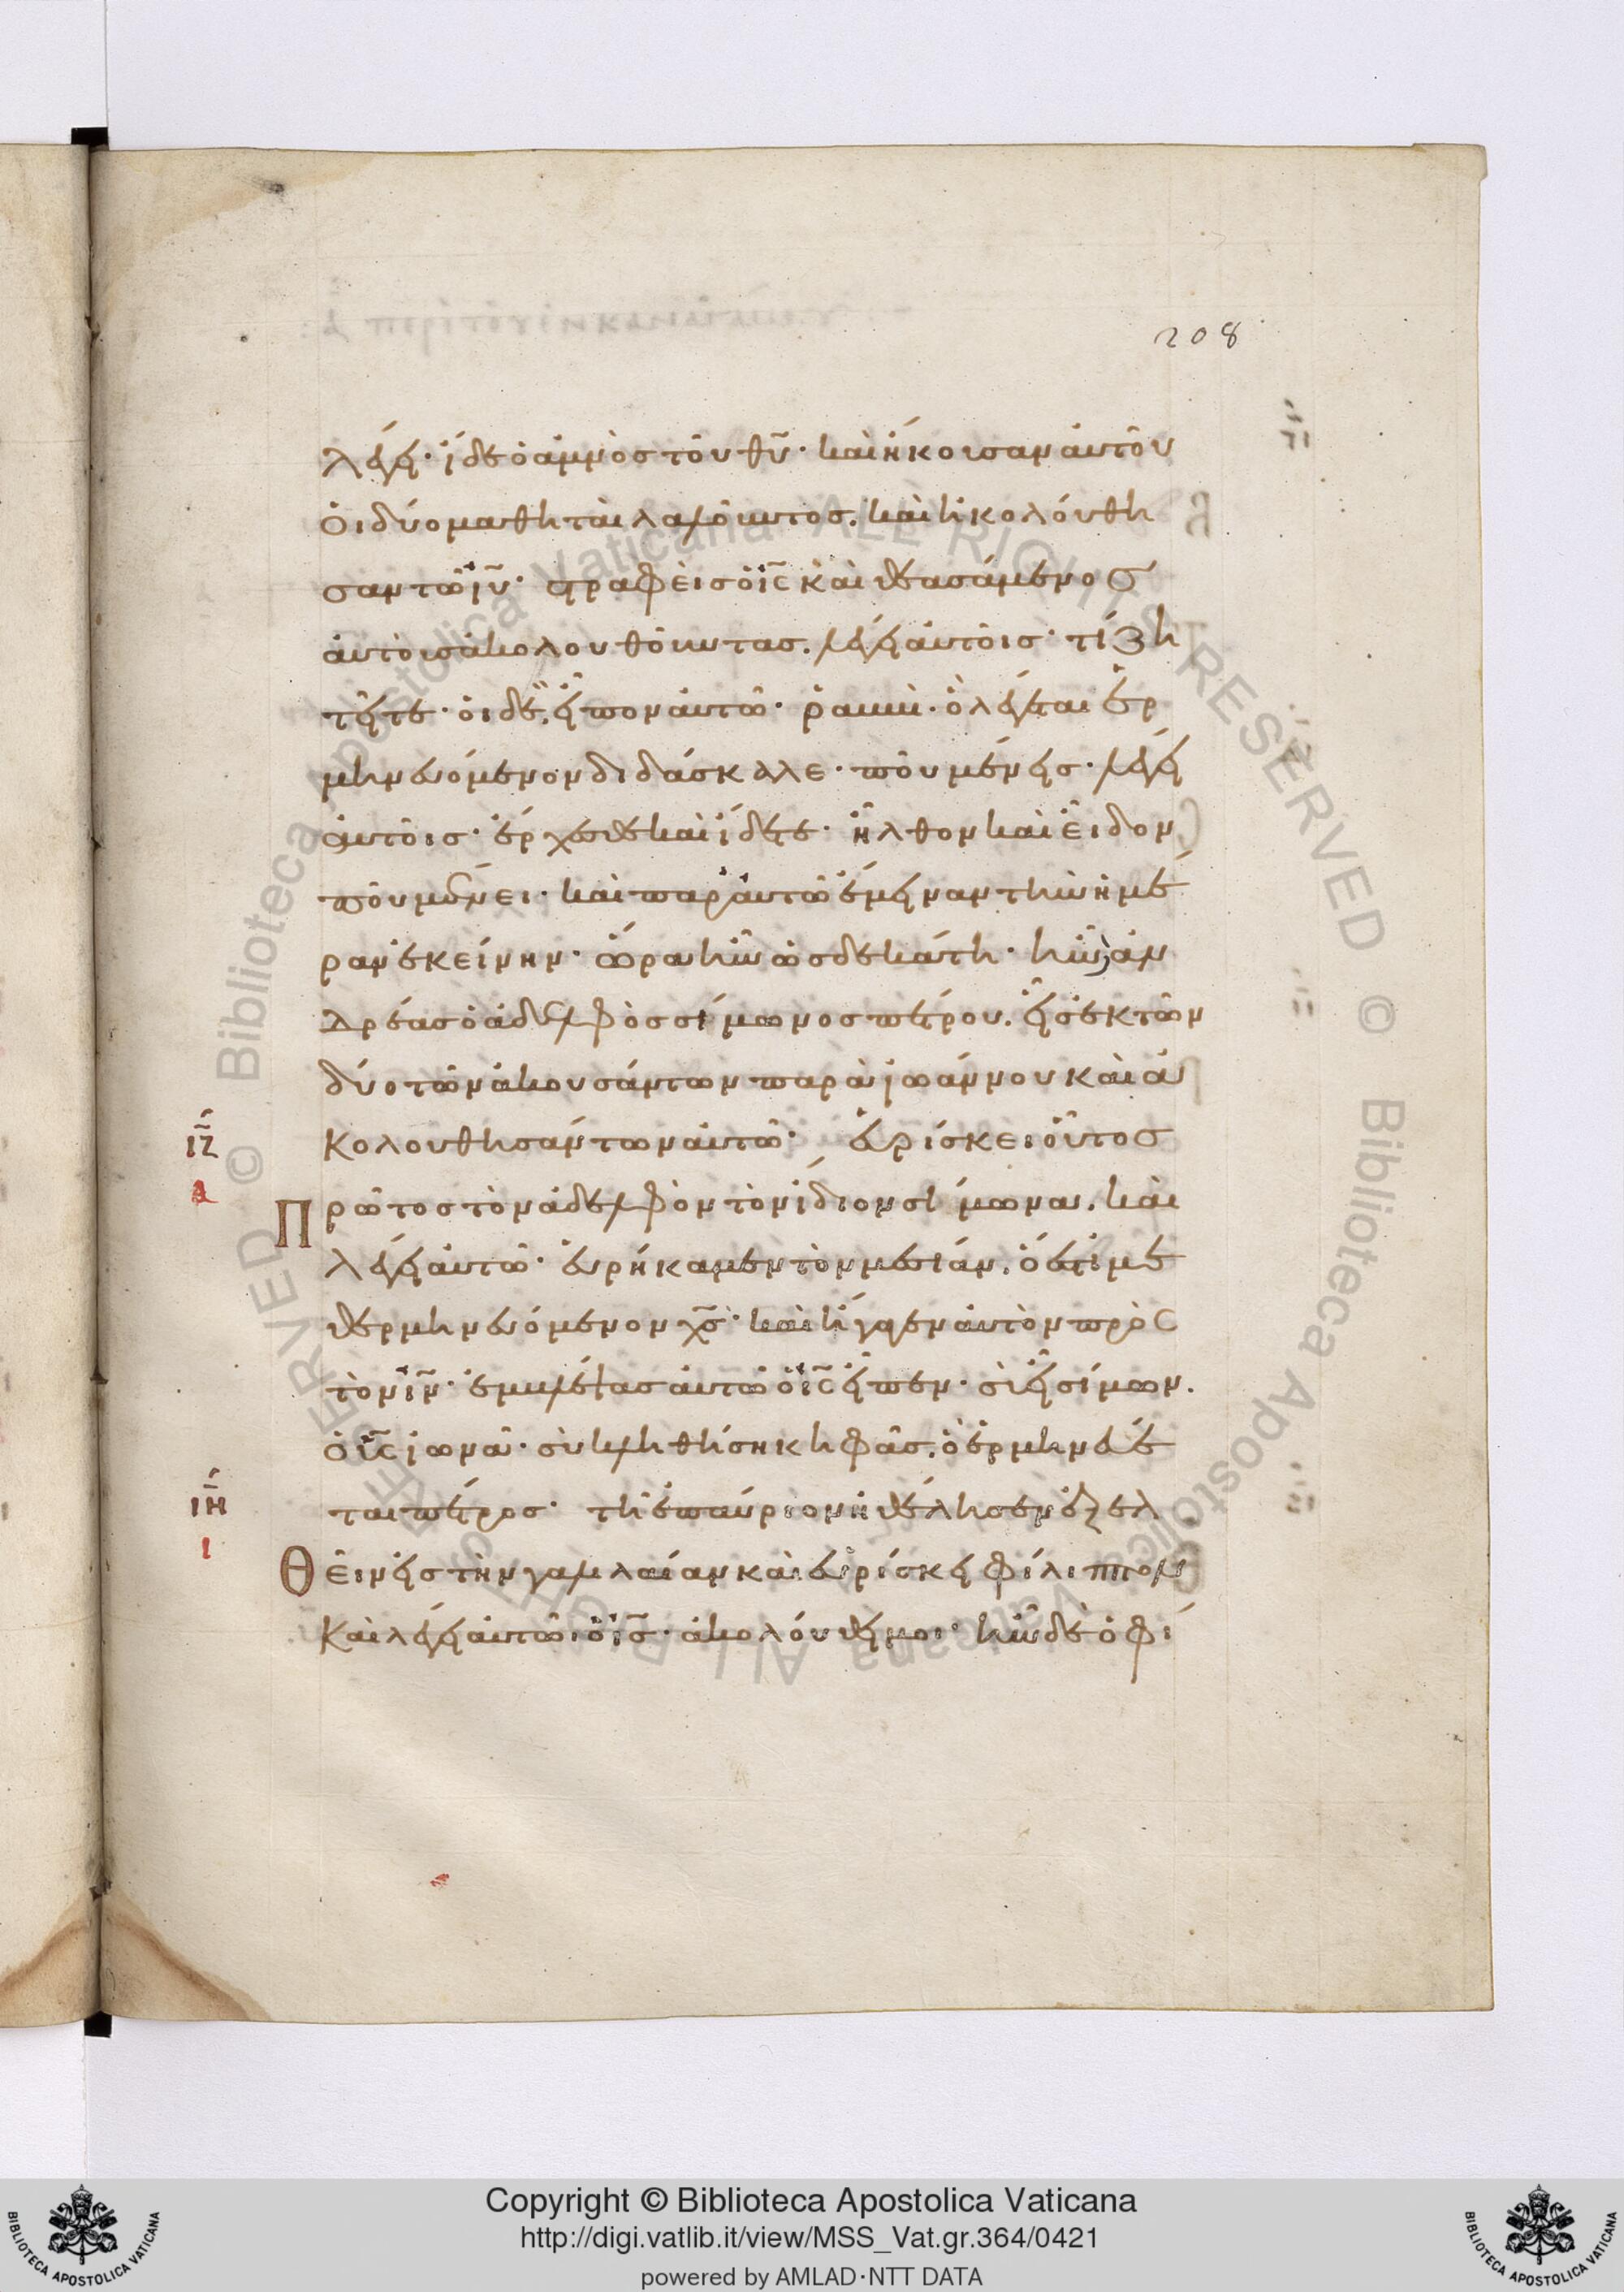 208
λέγει· ἴδε ὁ ἀμνὸς τοῦ θῦ· καὶ ἤκουσαν αὐτοῦ
οἱ δύο μαθηταὶ λαλοῦντος. καὶ ἠκολούθη
σαν τῶ ἰῦ· στραφεὶς ὁ ἰς καὶ θεασάμενος
αὐτοὺς ἀκολουθοῦντας. λέγει αὐτοῖς· τί ζη
τεῖτε· οἱ δὲ. εἶπον αὐτῶ· ῥαββὶ. ὃ λέγεται ἑρ
μηνευόμενον διδάσκαλε· ποῦ μένεις· λέγει
αὐτοῖς· ἔρχεσθε καὶ ἴδετε· ἦλθον καὶ εἶδον
ποῦ μένει· καὶ παρ' αὐτῶ ἔμειναν τὴν ἡμέ
ραν ἐκείνην· ὥρα ἦν ὡς δεκάτη· ἦν ἀν
δρέας ὁ ἀδελφὸς σίμωνος πέτρου. εἷς ἐκ τῶν
δύο τῶν ἀκουσάντων παρὰ ἰωάννου καὶ ἀ
κολουθησάντων αὐτῶ· εὑρίσκει οὗτος
ιζ
λ
πρῶτος τὸν ἀδελφὸν τὸν ἴδιον σίμωνα. καὶ
λέγει αὐτῶ· εὑρήκαμεν τὸν μεσίαν. ὅ ἐστι με
θερμηνευόμενον χς· καὶ ἤγαγεν αὐτὸν πρὸς
τὸν ἰν· ἐμβλέψας αὐτῶ ὁ ἰς εἶπεν· σὺ εἶ σίμων.
ὁ υἱς ἰωνᾶ· σὺ κληθήση κηφᾶς. ὃ ἑρμηνεύε
ται πέτρος· τῆ ἐπαύριον ἠθέλησεν ἐξελ
ιη
ι
θεῖν εἰς τὴν γαλιλαίαν καὶ εὑρίσκει φίλιππον
καὶ λέγει αὐτῶ ὁ ἰς· ἀκολούθει μοι· ἦν δὲ ὁ φί
Copyright © Biblioteca Apostolica Vaticana
http://digi.vatlib.it/view/MSS_Vat.gr.364/0421
powered by AMLAD·NTT DATA
BIBLIOTECA APOSTOLICA VATICANA
BIBLIOTECA APOSTOLICA VATICANA